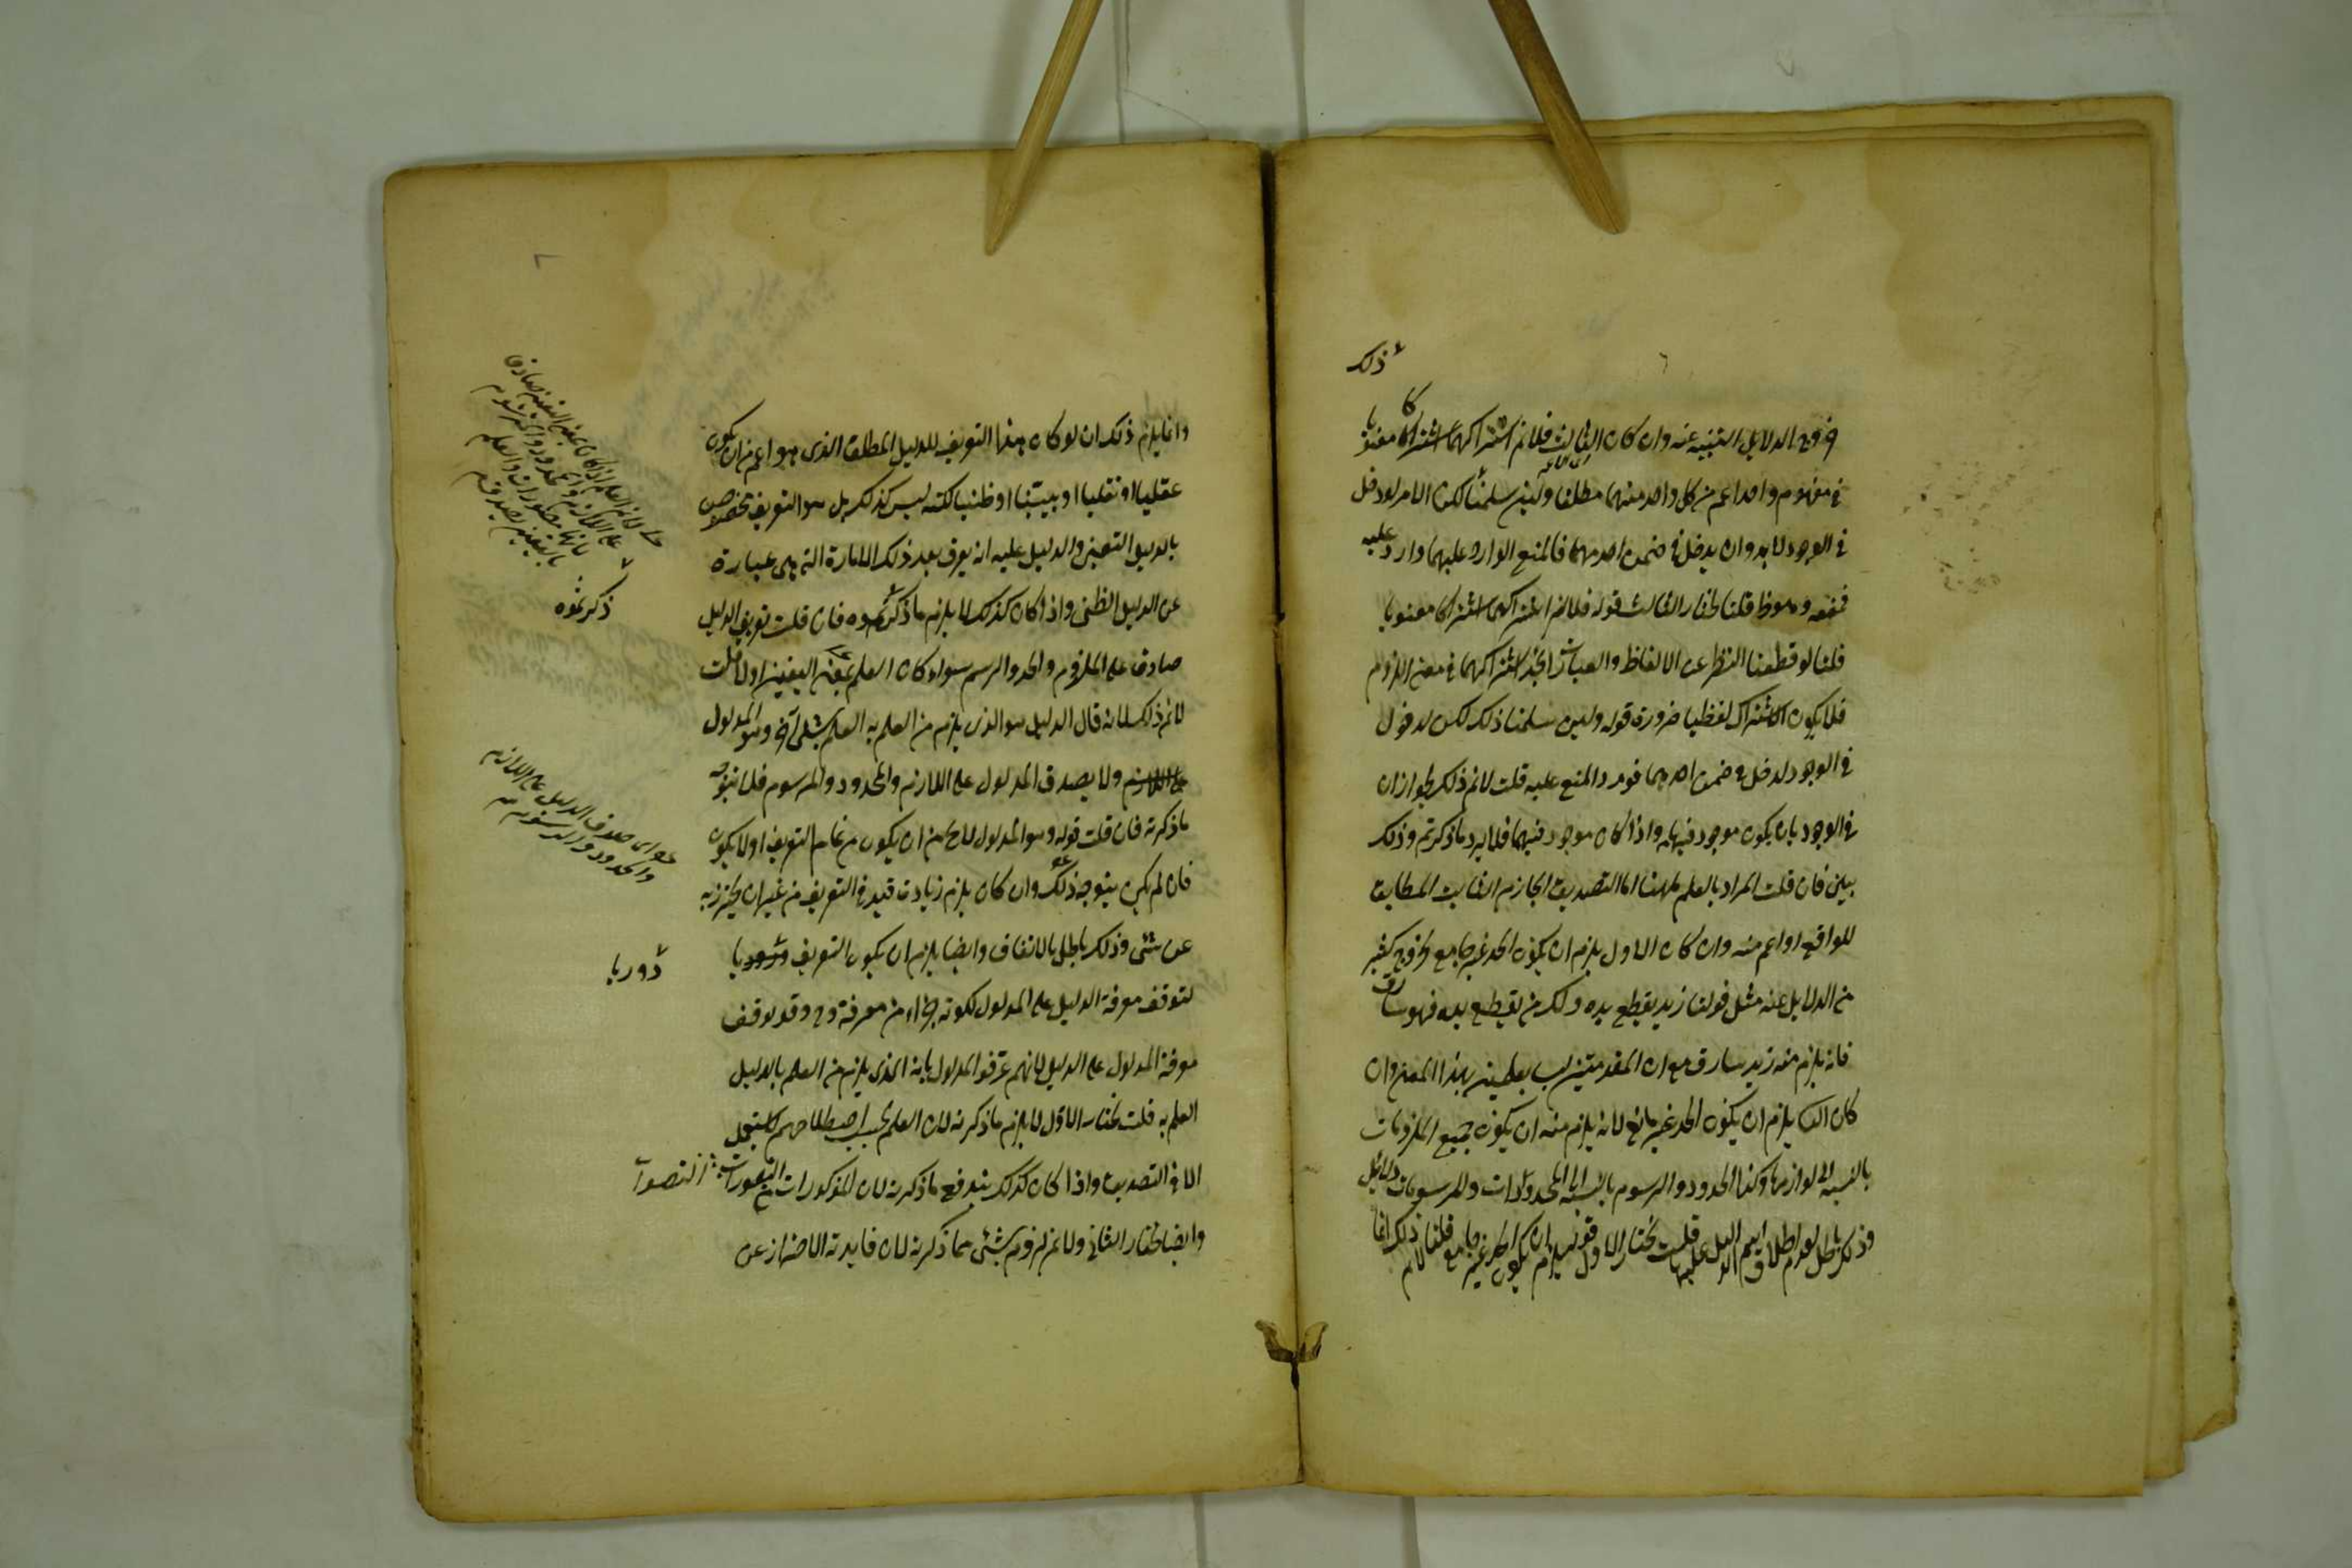 ذلك
خروج الدلايل التبنيه عنه وان كان الثالث فلانم اشتراكهما اشتراكا معنويا
في مفهوم واحد اعم من كل واحد منهما مطلقا ولئن سلمنا لكن الامر لو دخل
في الوجود لا بد وان يدخل في ضمن احدهما فالمنع الوارد عليهما وارد عليه
قلنا نختار الثالث قوله فلانم اشتراكهما اشتراكا معنويا
قلنا لو قطعنا النظر عن الالفاظ والعبارات نجد اشتراكهما في معنى اللزوم
فلا يكون الاشتراك لفظيا ضرورة قوله ولئن سلمنا ذلك لكن لو دخل
في الوجود لدخل في ضمن احدهما فورد المنع عليه قلت لانم ذلك لجواز ان
في الوجود بان يكون موجود فيهما واذا كان موجود فيهما فلا يرد ما ذكرتم وذلك
بين فان قلت المراد بالعلم ههنا اما التصديق الجازم الثابت المطابق
للواقع او اعم منه وان كان الاول يلزم ان يكون الحد غير جامع لخروج كثير
من الدلايل عنه مثل قولنا زيد يقطع يده وكل من يقطع يده فهو سارق
فانه يلزم منه زيد سارق مع ان المقدمتين ليستا بعلميتين بهذا المعنى وان
كان الثاني يلزم ان يكون الحد غير مانع لانه يلزم منه ان يكون جميع الملزومات
بالنسبة الى لوازمها وكذا الحدود والرسوم بالنسبة الى المحدودات والمرسومات دلائل
وذلك باطل لعدم اطلاق اسم الدليل عليها قلت نختار الاول قوله يلزم ان يكون الحد غير جامع قلنا لانم ذلك انما
وانما يلزم ذلك ان لو كان هذا التعريف للدليل المطلق الذي هو اعم من ان يكون
عقليا او نقليا او يقينيا او ظنيا لكنه ليس كذلك بل هو التعريف مخصوص
بالدليل اليقيني والدليل عليه انه يعرف بعد ذلك الامارة التي هي عبارة
عن الدليل الظني واذا كان كذلك لا يلزم ما ذكرتموه فان قلت تعريف الدليل
صادق على الملزوم والحد والرسم سواء كان العلم بمعنى اليقين او لا قلت
لانم ذلك لانه قال الدليل هو الذي يلزم من العلم به العلم بشيء آخر وهو المدلول
ولا يصدق المدلول على اللازم والمحدود والمرسوم فلا يتوجه
ما ذكرته فان قلت قوله وهو المدلول لا يخ من ان يكون من تمام التعريف او لا يكون
فان لم يكن يتوجه ذلك وان كان يلزم زيادت قيد في التعريف من غير ان يحترز به
عن شئ وذلك باطل بالاتفاق وايضا يلزم ان يكون التعريف دوريا
لتوقف معرفة الدليل على المدلول لكونه جزاء من معرفة وقد توقف
معرفة المدلول على الدليل لانهم عرفوا المدلول بانه الذي يلزم من العلم بالدليل
العلم به قلت نختار الاول لا يلزم ما ذكرته لان العلم بحسب اصطلاحهم لا يستعمل
الا في التصديق واذا كان كذلك يندفع ما ذكرته لان المذكورات من التصورات
وايضا نختار الثاني ولانم لزوم شئ مما ذكرته لان فايدته الاحتراز عن
ذكرتموه
اى صدق الدليل على اللازم
والمحدود والمرسوم
دوريا